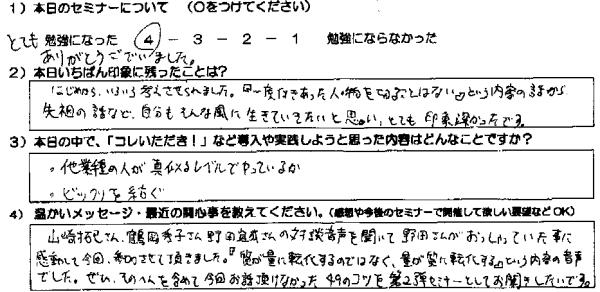 1）本日のセミナーについて （〇をつけてください）
とても 勉強になった ④ － 3 － 2 － 1 勉強にならなかった
ありがとうございました。
2）本日いちばん印象に残ったことは？
はじめから、いろいろ考えさせられました。『一度付きあった人と縁を切ることはない』という内容の話から
先祖の話など、自分もそんな風に生きていきたいと思い、とても印象深かったです。
3）本日の中で、「コレいただき！」など導入や実践しようと思った内容はどんなことですか？
。他業種の人が真似るレベルでやっているか
。ビックリを紡ぐ
4）温かいメッセージ・最近の関心事を教えてください。（感想や今後のセミナーで開催して欲しい要望などOK）
山崎拓巳さん、鶴岡秀子さん 野田宜成さんの対談音声を聞いて 野田さんがおっしゃっていた事に
感動して今回、参加させて頂きました。『質が量に転化するのではなく、量が質に転化する』という内容の音声
でした。ぜひ、そのへんを含めて今回お話頂けなかった49のコツを第2弾セミナーとしてお聞きしたいです。